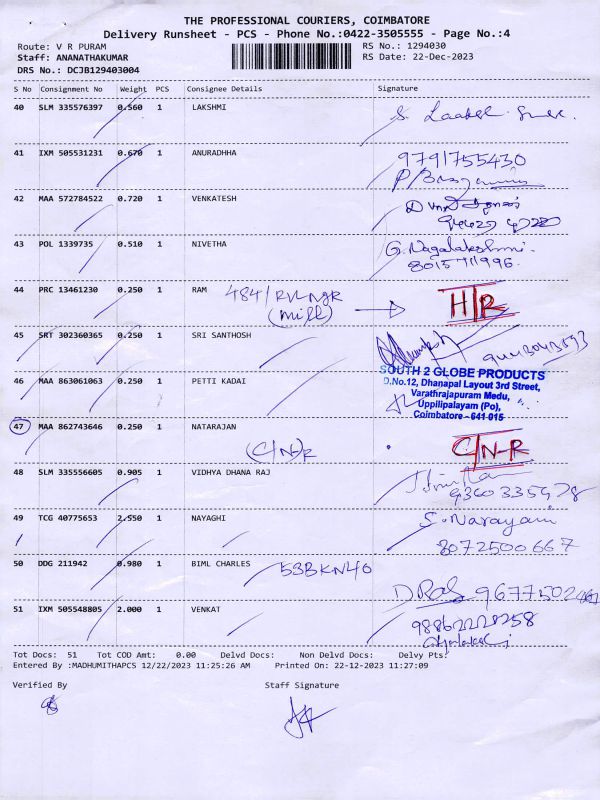 THE PROFESSIONAL COURIERS, COIMBATORE
Delivery Runsheet - PCS - Phone No.:0422-3505555 - Page No.:4
Route: V R PURAM
RS No.: 1294030
Staff: ANANATHAKUMAR
RS Date: 22-Dec-2023
DRS No.: DCJB129403004
S No Consignment No Weight PCS Consignee Details Signature
40 SLM 335576397 0.560 1 LAKSHMI
41 IXM 505531231 0.670 1 ANURADHHA 9791755430
42 MAA 572784522 0.720 1 VENKATESH
43 POL 1339735 0.510 1 NIVETHA G. Nagalakshmi.
44 PRC 13461230 0.250 1 RAM 484/RVLNGR H/R
(mill)
45 SRT 302360365 0.250 1 SRI SANTHOSH
46 MAA 863061063 0.250 1 PETTI KADAI
SOUTH 2 GLOBE PRODUCTS
D.No.12, Dhanapal Layout 3rd Street,
Varathrajapuram Medu,
Uppilipalayam (Po),
Coimbatore - 641 015
47 MAA 862743646 0.250 1 NATARAJAN
C/N-R C/N-R
48 SLM 335556605 0.905 1 VIDHYA DHANA RAJ
9360335978
49 TCG 40775653 2.550 1 NAYAGHI S. Narayani
8072500667
50 DDG 211942 0.980 1 BIML CHARLES 53BKN40
51 IXM 505548805 2.000 1 VENKAT
Tot Docs: 51 Tot COD Amt: 0.00 Delvd Docs: Non Delvd Docs: Delvy Pts:
Entered By :MADHUMITHAPCS 12/22/2023 11:25:26 AM Printed On: 22-12-2023 11:27:09
Verified By Staff Signature